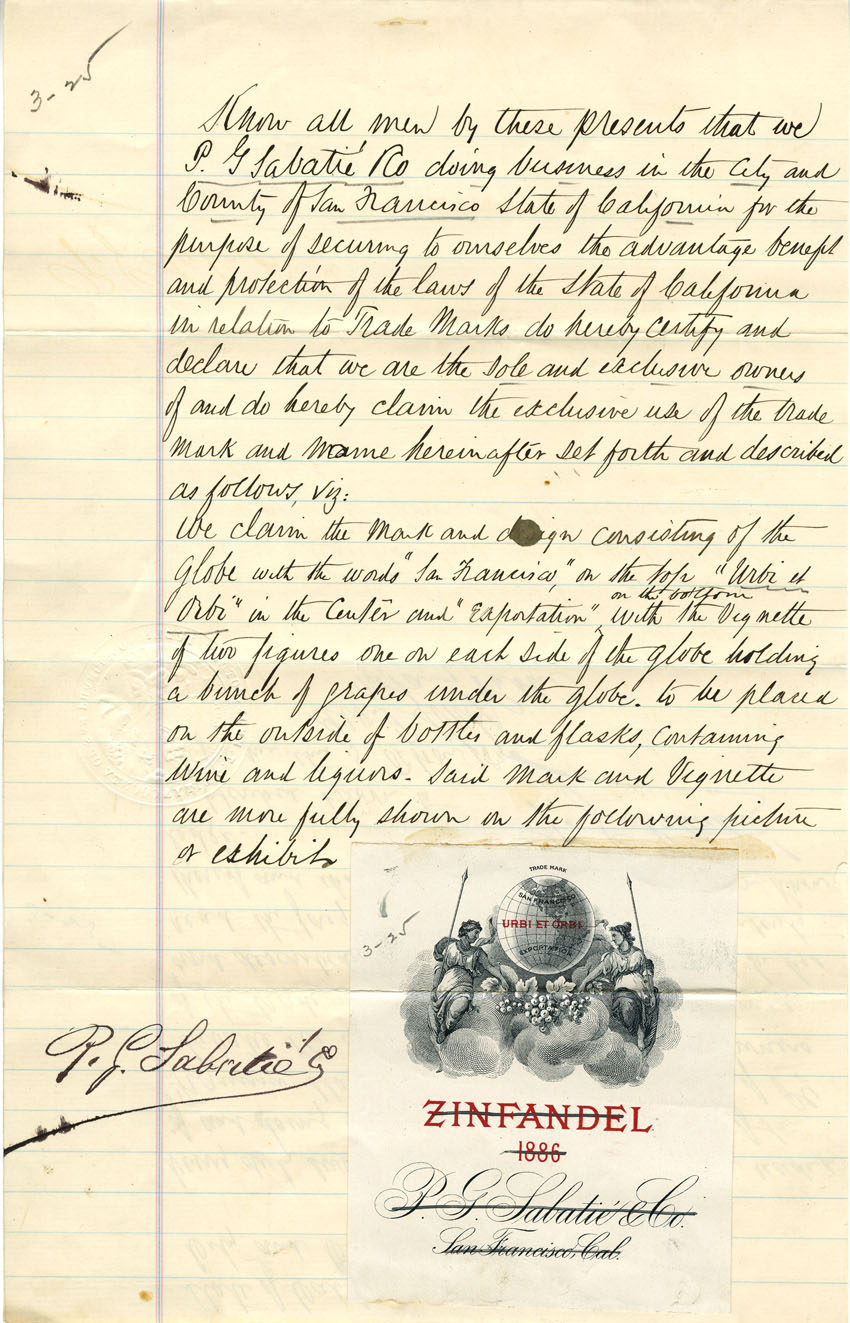 3-25
Know all men by these presents that we
P. G Sabatié & Co doing business in the City and
County of San Francisco State of California for the
purpose of securing to ourselves the advantage benefit
and protection of the laws of the State of California
in relation to Trade Marks do hereby certify and
declare that we are the sole and exclusive owners
of and do hereby claim the exclusive use of the trade
Mark and name hereinafter set forth and described
as follows, viz:
We claim the Mark and design consisting of the
Globe with the words "San Francisco," on the top "Urbi et
on the bottom
Orbi" in the Center and "Exportation", with the Vignette
of two figures one on each side of the globe holding
a bunch of grapes under the globe. to be placed
on the outside of bottles and flasks, containing
Wine and liquors. Said Mark and Vignette
are more fully shown on the following picture
or exhibit
TRADE MARK
SAN FRANCISCO
URBI ET ORBI
EXPORTATION
3-25
P. G. Sabatié & Co
ZINFANDEL
1886
P. G. Sabatié & Co.
San Francisco, Cal.